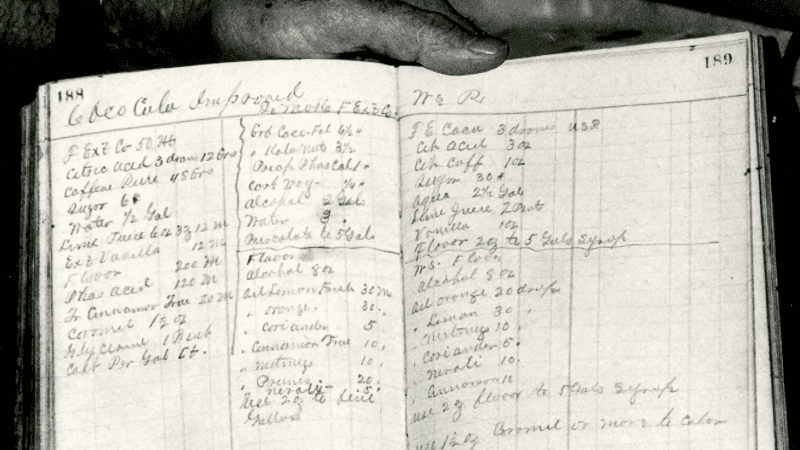 188
Coco Cola Improved
F Ext Co 50 M
Citric Acid 3 drams 12 Grs
Caffeine Pure 48 Grs
Sugar 6#
Water 1/2 Gal
Lime Juice 6 oz 3z 12 M
Ext Vanilla 12 M
Flavor 200 M
Phos Acid 120 M
Tr Cinnamon True 20 M
Coromel 1 1/2 oz
Glycerine
Cost Per Gal
To Make F Ext Co.
Grd Coco. 6 1/2 "
" Kola nuts 3 1/2
Alcohol 2 Gals
Water 3 "
Percolate to 5 Gals
Flavor
Alcohol 8 oz
Oil Lemon Fresh 30 M
" Orange " 30 "
" Coriander 5
" Cinnamon True 10 "
" Nutmegs 10 "
" 20 "
" Neroli 5
Use 2 oz to
Gallons
189
F E Coca 3 drams USP
Cit Acid 3 oz
Cit Caff 1 oz
Sugar 30 #
Aqua 2 1/2 Gals
Lime Juice 2 Pints
Vanilla 1 oz
Flavor 2 oz to 5 Gals Syrup
Flavor
Alcohol 8 oz
Oil Orange 20 drops
" Lemon 30 "
" Nutmegs 10 "
" Coriander 5 "
" Neroli 10 "
" Cinnamon 10
Use 2 oz flavor to 5 Gals Syrup
Use 1 1/2 oz or more to color